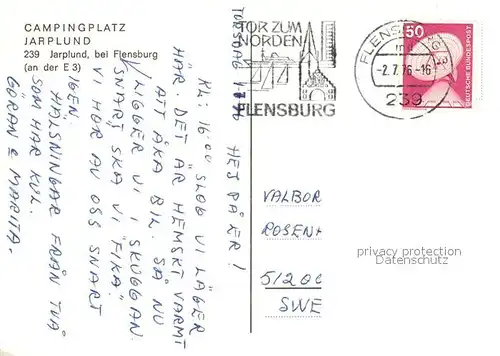 CAMPINGPLATZ
JARPLUND
239 Jarplund, bei Flensburg
(an der E 3)
TOR ZUM
NORDEN
FLENSBURG
FLENSBURG
-2.7.76-16
239
50
DEUTSCHE BUNDESPOST
TORSDAG 1/7 76 HEJ PÅ ER!
KL: 16⁰⁰ SLOG VI LÄGER
HÄR. DET ÄR HEMSKT VARMT
ATT ÅKA BIL. SÅ NU
LIGGER VI I SKUGGAN.
SNART SKA VI "FIKA".
VI HÖR AV OSS SNART
IGEN.
HÄLSNINGAR FRÅN TVÅ
SOM HAR KUL.
GÖRAN & MARITA.
VALBOR
ROSENH
51200
SWE
privacy protection
Datenschutz